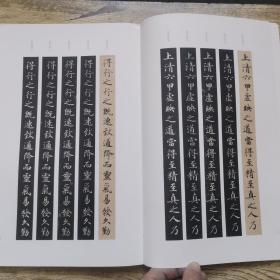 上清六甲虛映之道當得至精至真之人乃
上清六甲虛映之道當得至精至真之人乃
上清六甲虛映之道當得至精至真之人乃
上清六甲虛映之道當得至精至真之人乃
上清六甲虛映之道當得至精至真之人乃
得行之行之既速致通降而靈氣易發久勤
得行之行之既速致通降而靈氣易發久勤
得行之行之既速致通降而靈氣易發久勤
得行之行之既速致通降而靈氣易發久勤
得行之行之既速致通降而靈氣易發久勤